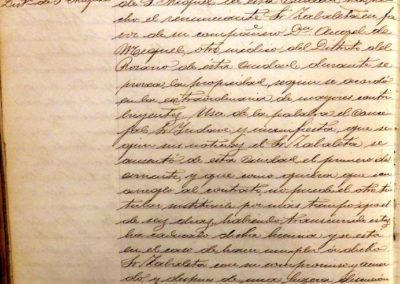 de S. Miguel en esta Ciudad
cho el renunciante Sr. Zabaleta en fa
vor de su compañero Dn. Angel de
Mequel, otro médico del Distrito del
Rosario de esta Ciudad durante se
provea la propiedad, segun se acordó
en la extraordinaria de mayores contri
buyentes. Usa de la palabra el Conce
jal Sr. y manifiesta que se
gun sus noticias el Sr. Zabaleta se
ausentó de esta Ciudad el primero del
corriente, y que como quiera que con
arreglo al contrato no puede el otro ti
tular sustituirle por más tiempo que
de seis dias, habiendo transcurrido estos
ha caducado dicha licencia y se está
en el caso de hacer cumplir a dicho
Sr. Zabaleta con su compromiso y
despues de una ligera discusión